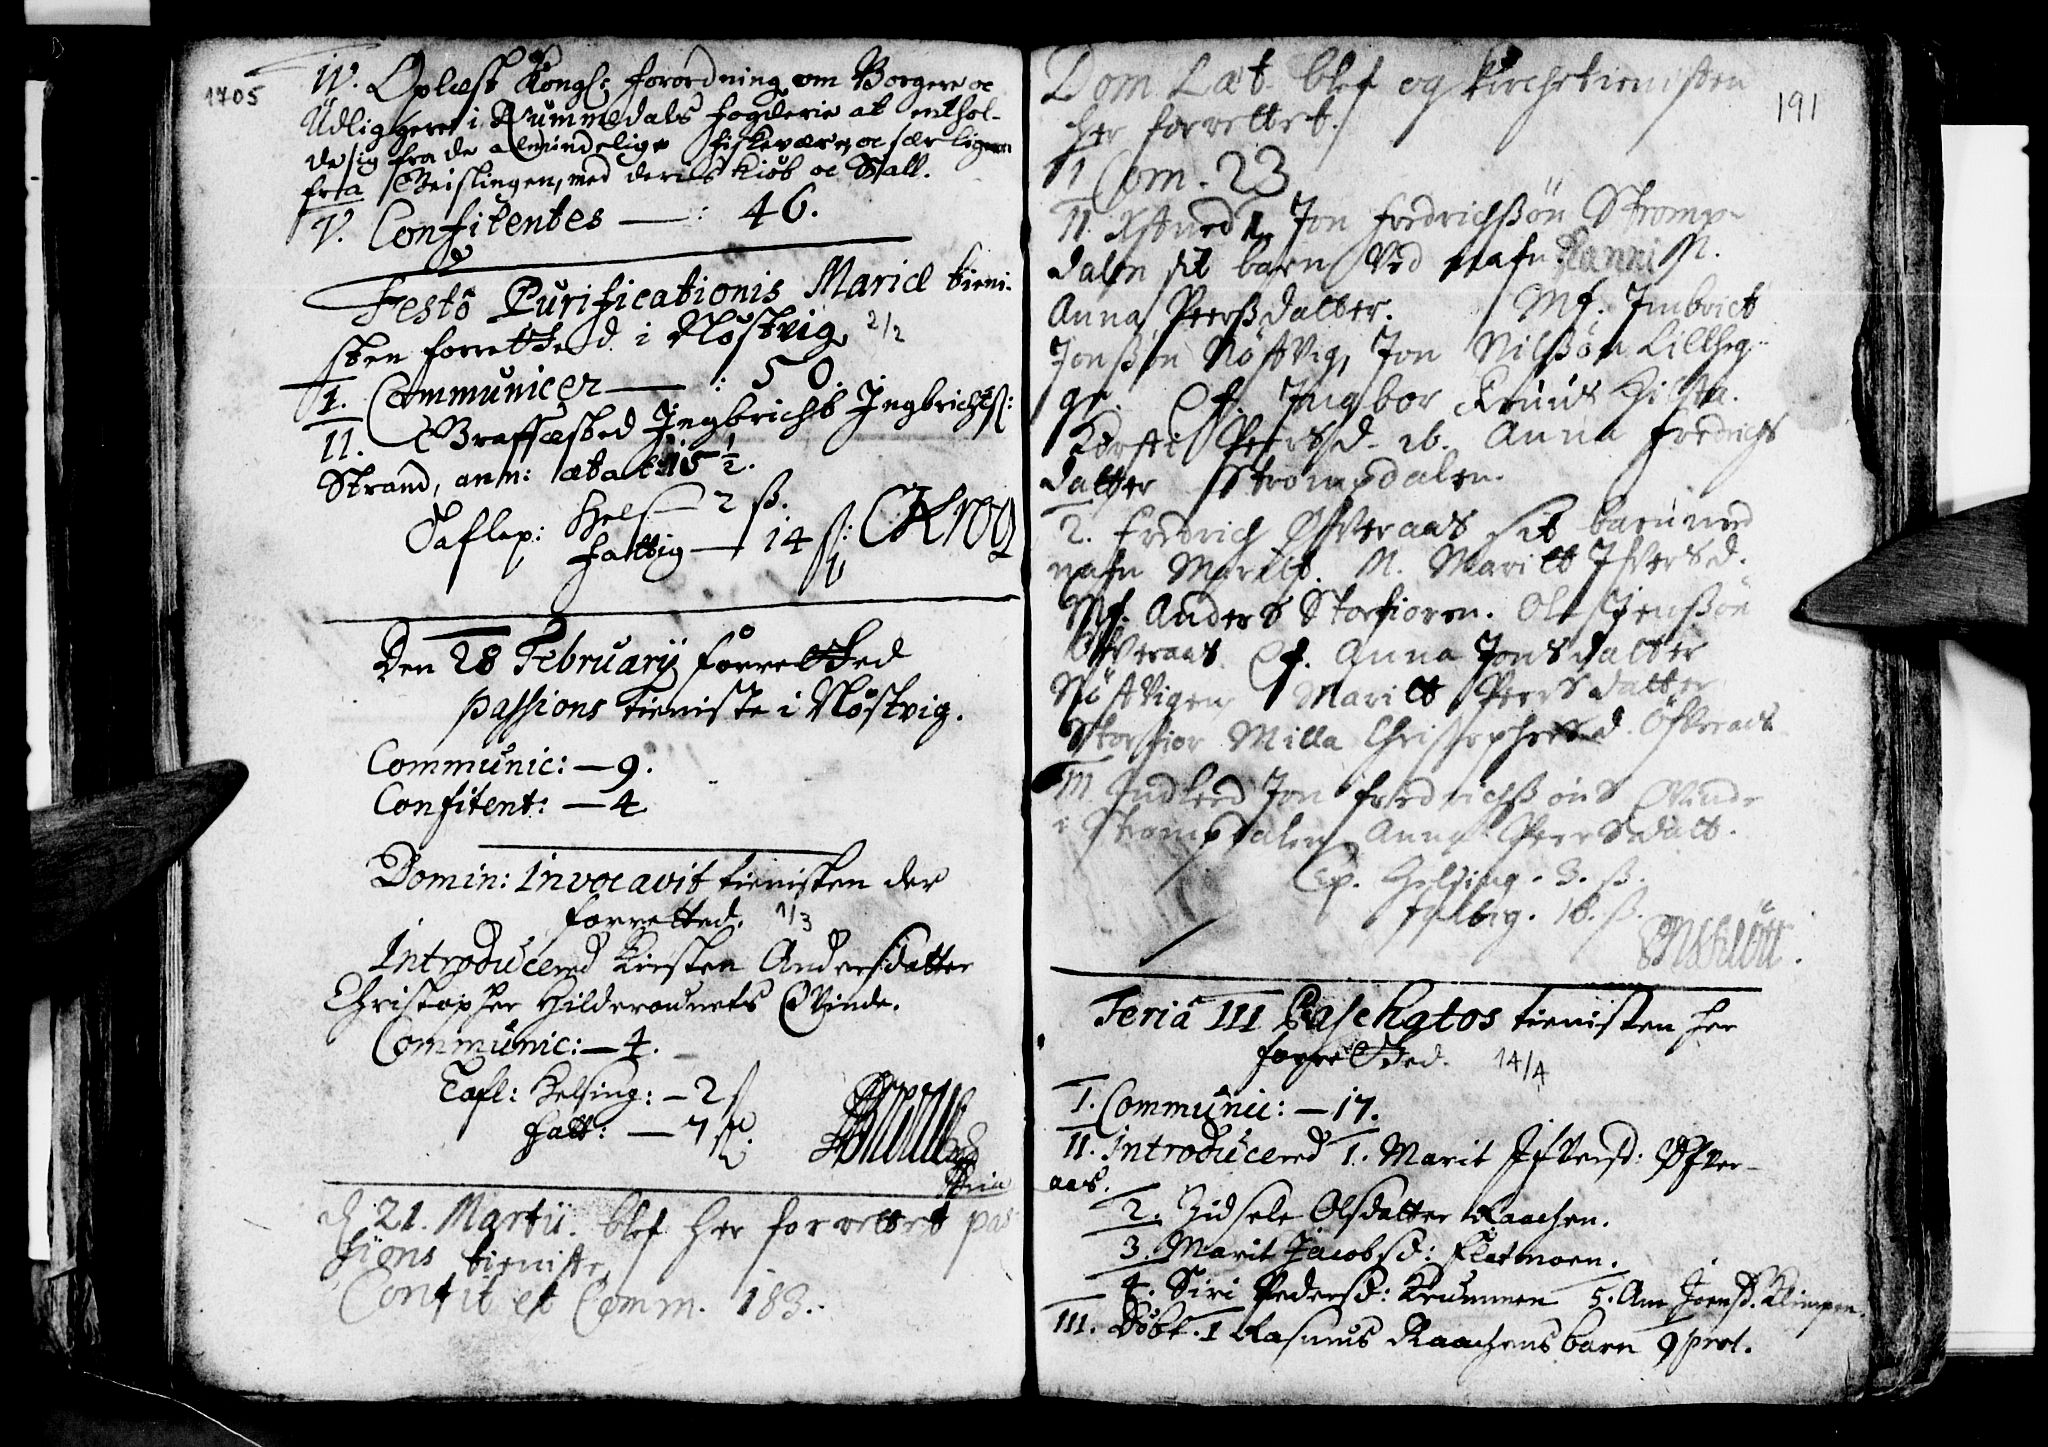 1705
IV. Oplæst Kongl: forordning om Borgere oc
Udliggere i Rummedals fogderie at enthol-
de sig fra de almindelige fiskevær, oc særligen
fra Geislingen, med deris kiøb oc Sall.
V. Confitentes — : 46.
Festo Purificationis Mariæ tieni-
sten forretted i Nøstvig 2/2
I. Communicer — : 50
II. Graffæsted Ingbricht Ingbrichtß:
Strand, ann: ætat: 15 1/2.
Taflep: Hels — 2 ß.
fattig — 14 ß: CKrog
Den 28 Februarij forretted
passions tieniste i Nøstvig.
Communic: — 9.
Confitent: — 4
Domin: Invocavit tienisten her
forretted. 1/3
Introducered Kirsten Andersdatter
Christopher Hilderounets Qvinde.
Communic: — 4.
Tafl: Helsing: — 2 ß
fatt: — 7 ß.
d. 21. Martii. blef her forrettet pas
sions tieniste
Confit et Comm. 183.
191
Dom Læt. blef og kirchetienisten
her forrettet.
I Com. 23
II. Jon fredrichßön Stromp-
dalen sit barn Ved nafn M.
Anna Peerßdatter. Mf. Imbrict
Jonßen Nöstvig, Jon Nilßön Lilleheg-
ge. Qf. Ingbor Knuds
Kirsti Peersd. ib. Anna fredrichs
datter Strompdalen.
2. fredrich Øfveraas sit barn med
nafn Maritt. M. Maritt Ifversd.
Mf. Anders Storfioren. Ole Jenßön
Øfveraas. Qf. Anna Jonsdatter
Nöstvigen Maritt Peersdatter
Storfior Milla Christophersd. Öfveraas
III Indleed Jon fredrichßöns Qvinde
i Strompdalen Anna Peersdatt.
Exp. Helsing. 3. ß.
16. ß.
Feria III Paschatos tienisten her
forretted. 14/4
I. Communic: — 17.
II. Introducered 1. Marit Ifversd: Øfver-
aas.
2. Zidsele Olsdatter Raachen.
3. Marit Jacobsd: Fletmoen.
4. Siri Pedersd: Krummen 5. Ane Joensd. Klimpen.
III. Døbt. 1 Rasmus Raachens barn